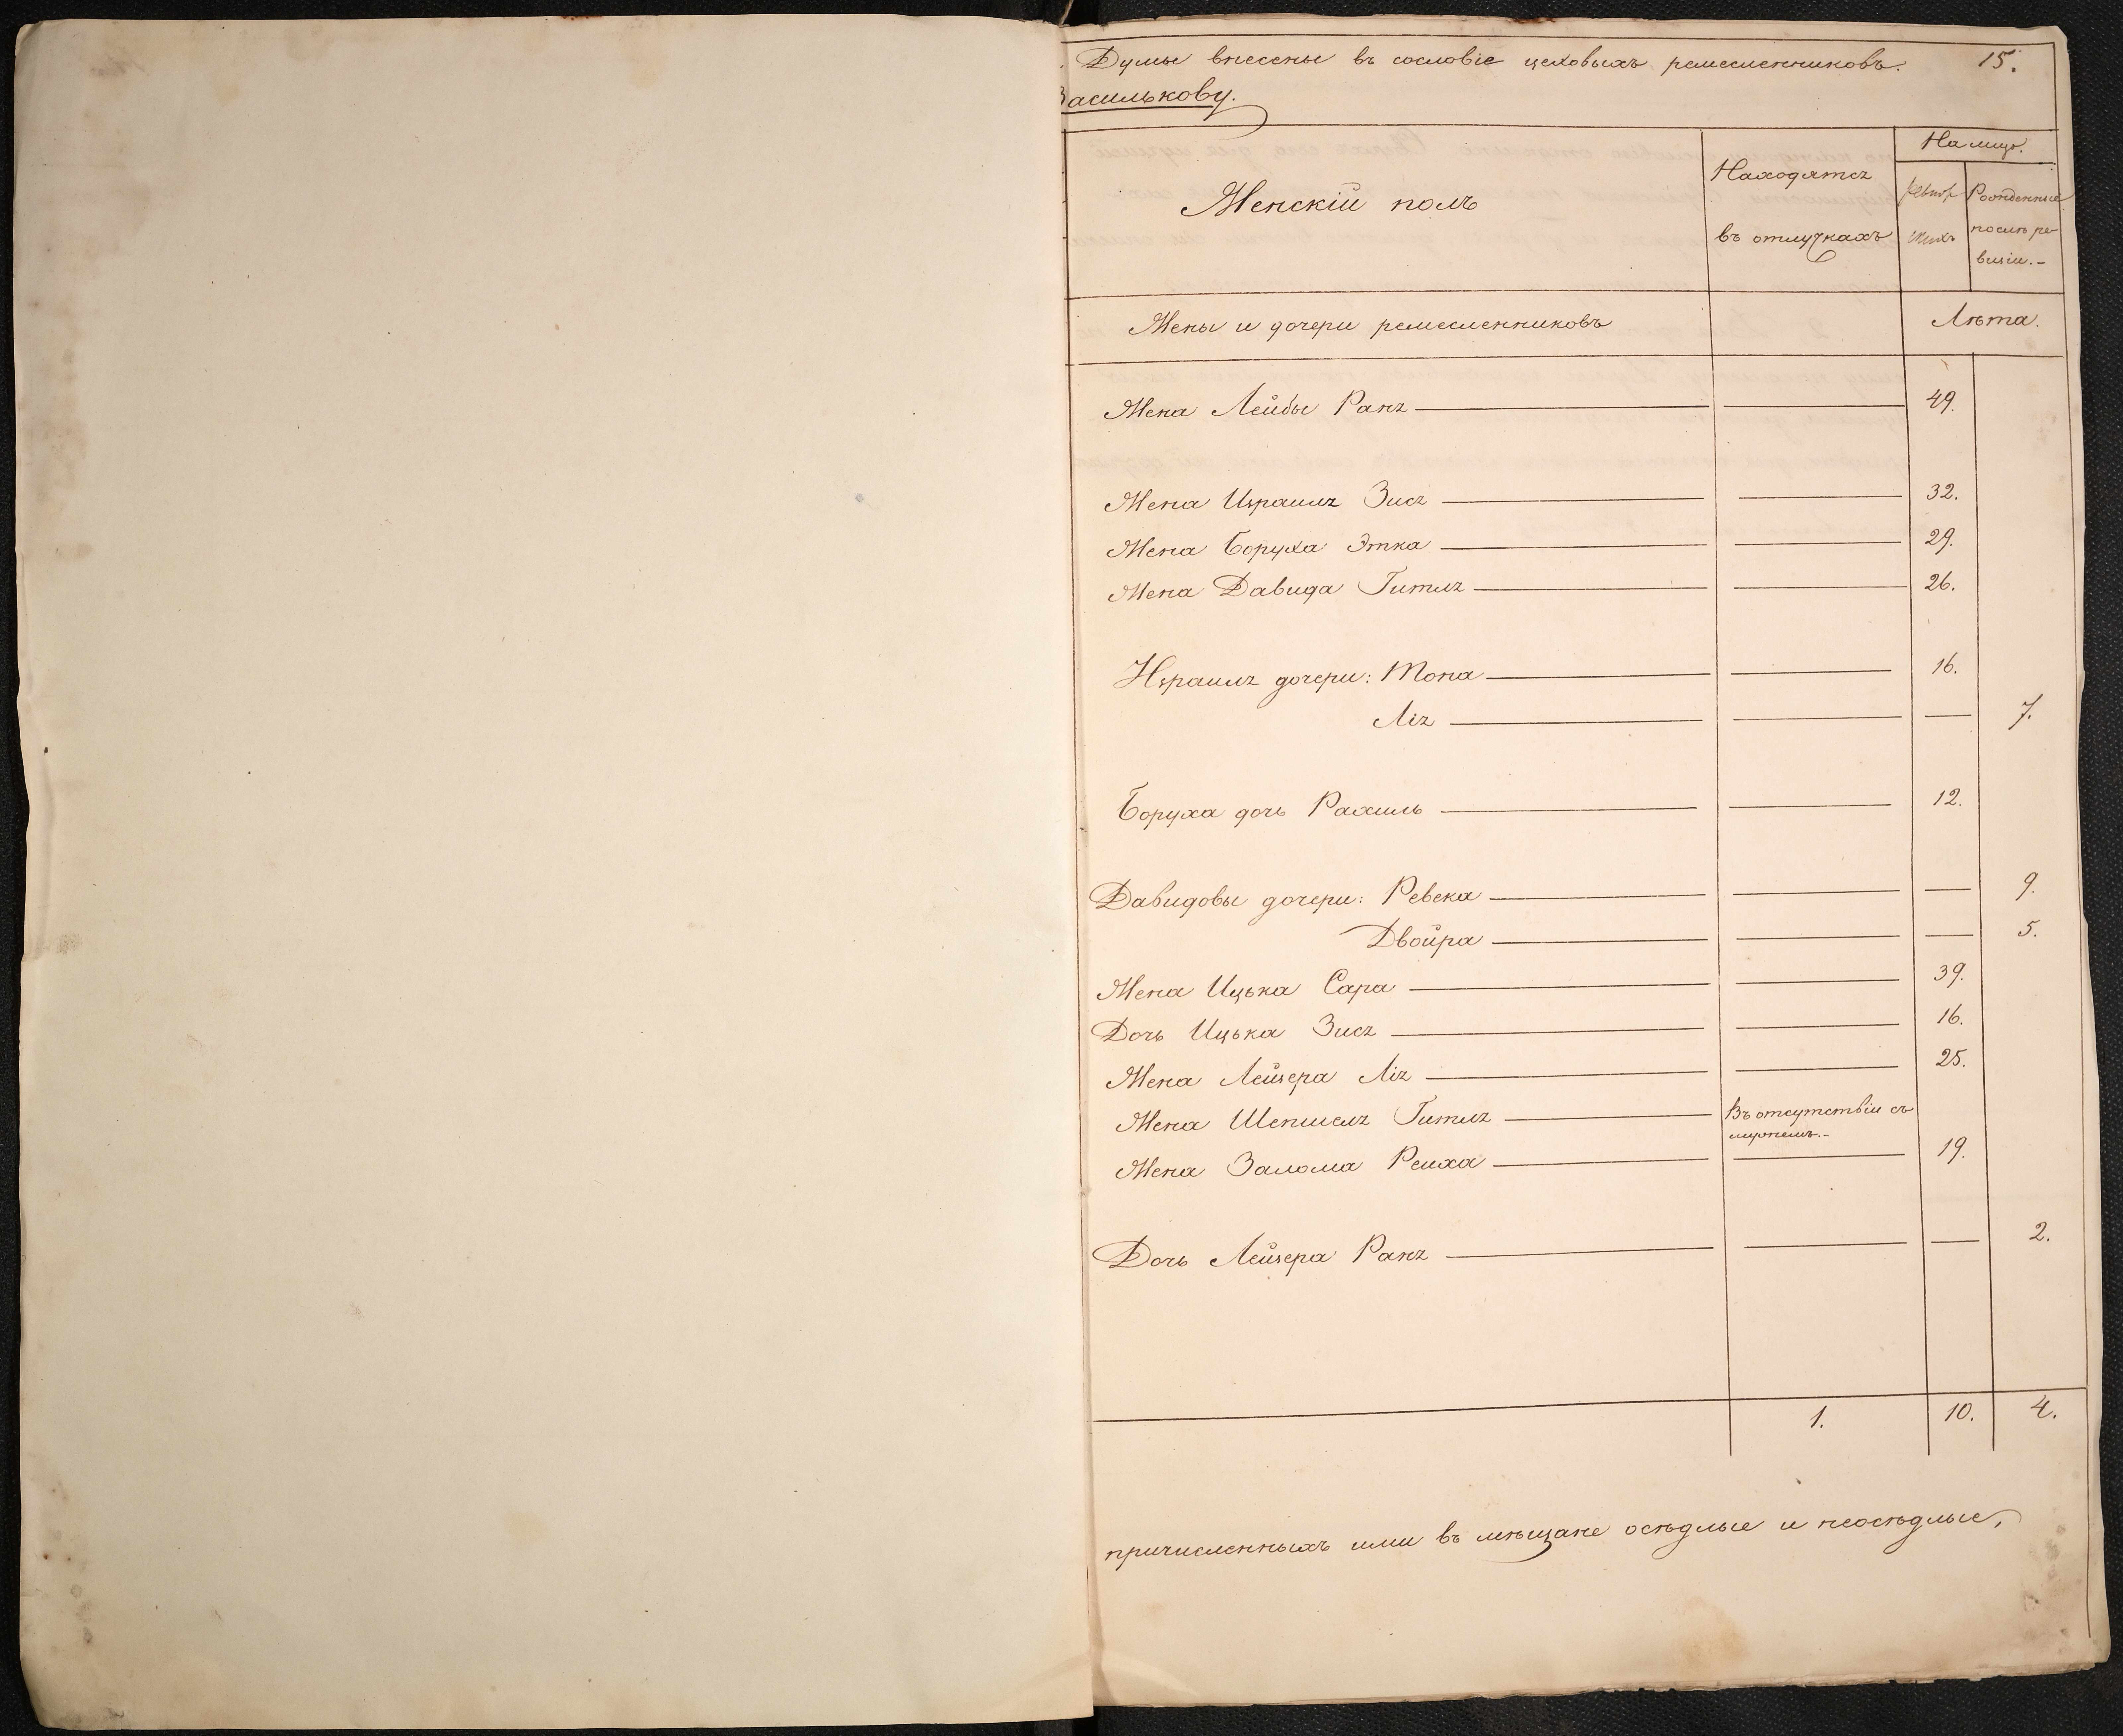 Думы внесены въ сословіе цеховыхъ ремесленниковъ. 15.
Василькову.
Женскій полъ
Находятся
въ отлучкахъ
На лицо.
Рожденные
послѣ ре-
визіи.-
Жены и дочери ремесленниковъ
Лѣта.
Жена Лейбы Раня 49.
Жена Израиля Зися 32.
Жена Боруха Этка 29.
Жена Давида Гитля 26.
Израиля дочери: Мона 16.
Лія 7.
Боруха дочь Рахиль 12.
Давидовы дочери: Ревека 9.
Двойра 5.
Жена Ицька Сара 39.
Дочь Ицька Зися 16.
Жена Лейзера Лія 25.
Жена Шепшеля Гитля Въ отсутствіи съ
мужемъ.-
Жена Залома Реиха 19.
Дочь Лейзера Раня 2.
1. 10. 4.
причисленныхъ ими въ мѣщане осѣдлые и неосѣдлые,